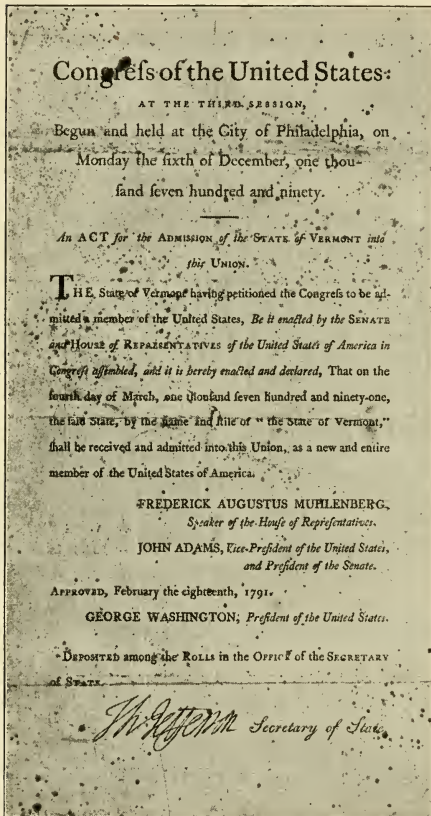 Congreſs of the United States:
AT THE THIRD SESSION,
Begun and held at the City of Philadelphia, on
Monday the ſixth of December, one thou-
ſand ſeven hundred and ninety.
An ACT for the ADMISSION of the STATE of VERMONT into
this UNION.
THE State of Vermont having petitioned the Congreſs to be ad-
mitted a member of the United States, Be it enacted by the SENATE
and HOUSE of REPRESENTATIVES of the United States of America in
Congreſs aſſembled, and it is hereby enacted and declared, That on the
fourth day of March, one thouſand ſeven hundred and ninety-one,
the ſaid State, by the name and ſtile of "the State of Vermont,"
ſhall be received and admitted into this Union, as a new and entire
member of the United States of America.
FREDERICK AUGUSTUS MUHLENBERG,
Speaker of the Houſe of Repreſentatives.
JOHN ADAMS, Vice-Preſident of the United States,
and Preſident of the Senate.
APPROVED, February the eighteenth, 1791.
GEORGE WASHINGTON, Preſident of the United States.
DEPOSITED among the ROLLS in the OFFICE of the SECRETARY
of STATE.
Th. Jefferson Secretary of State